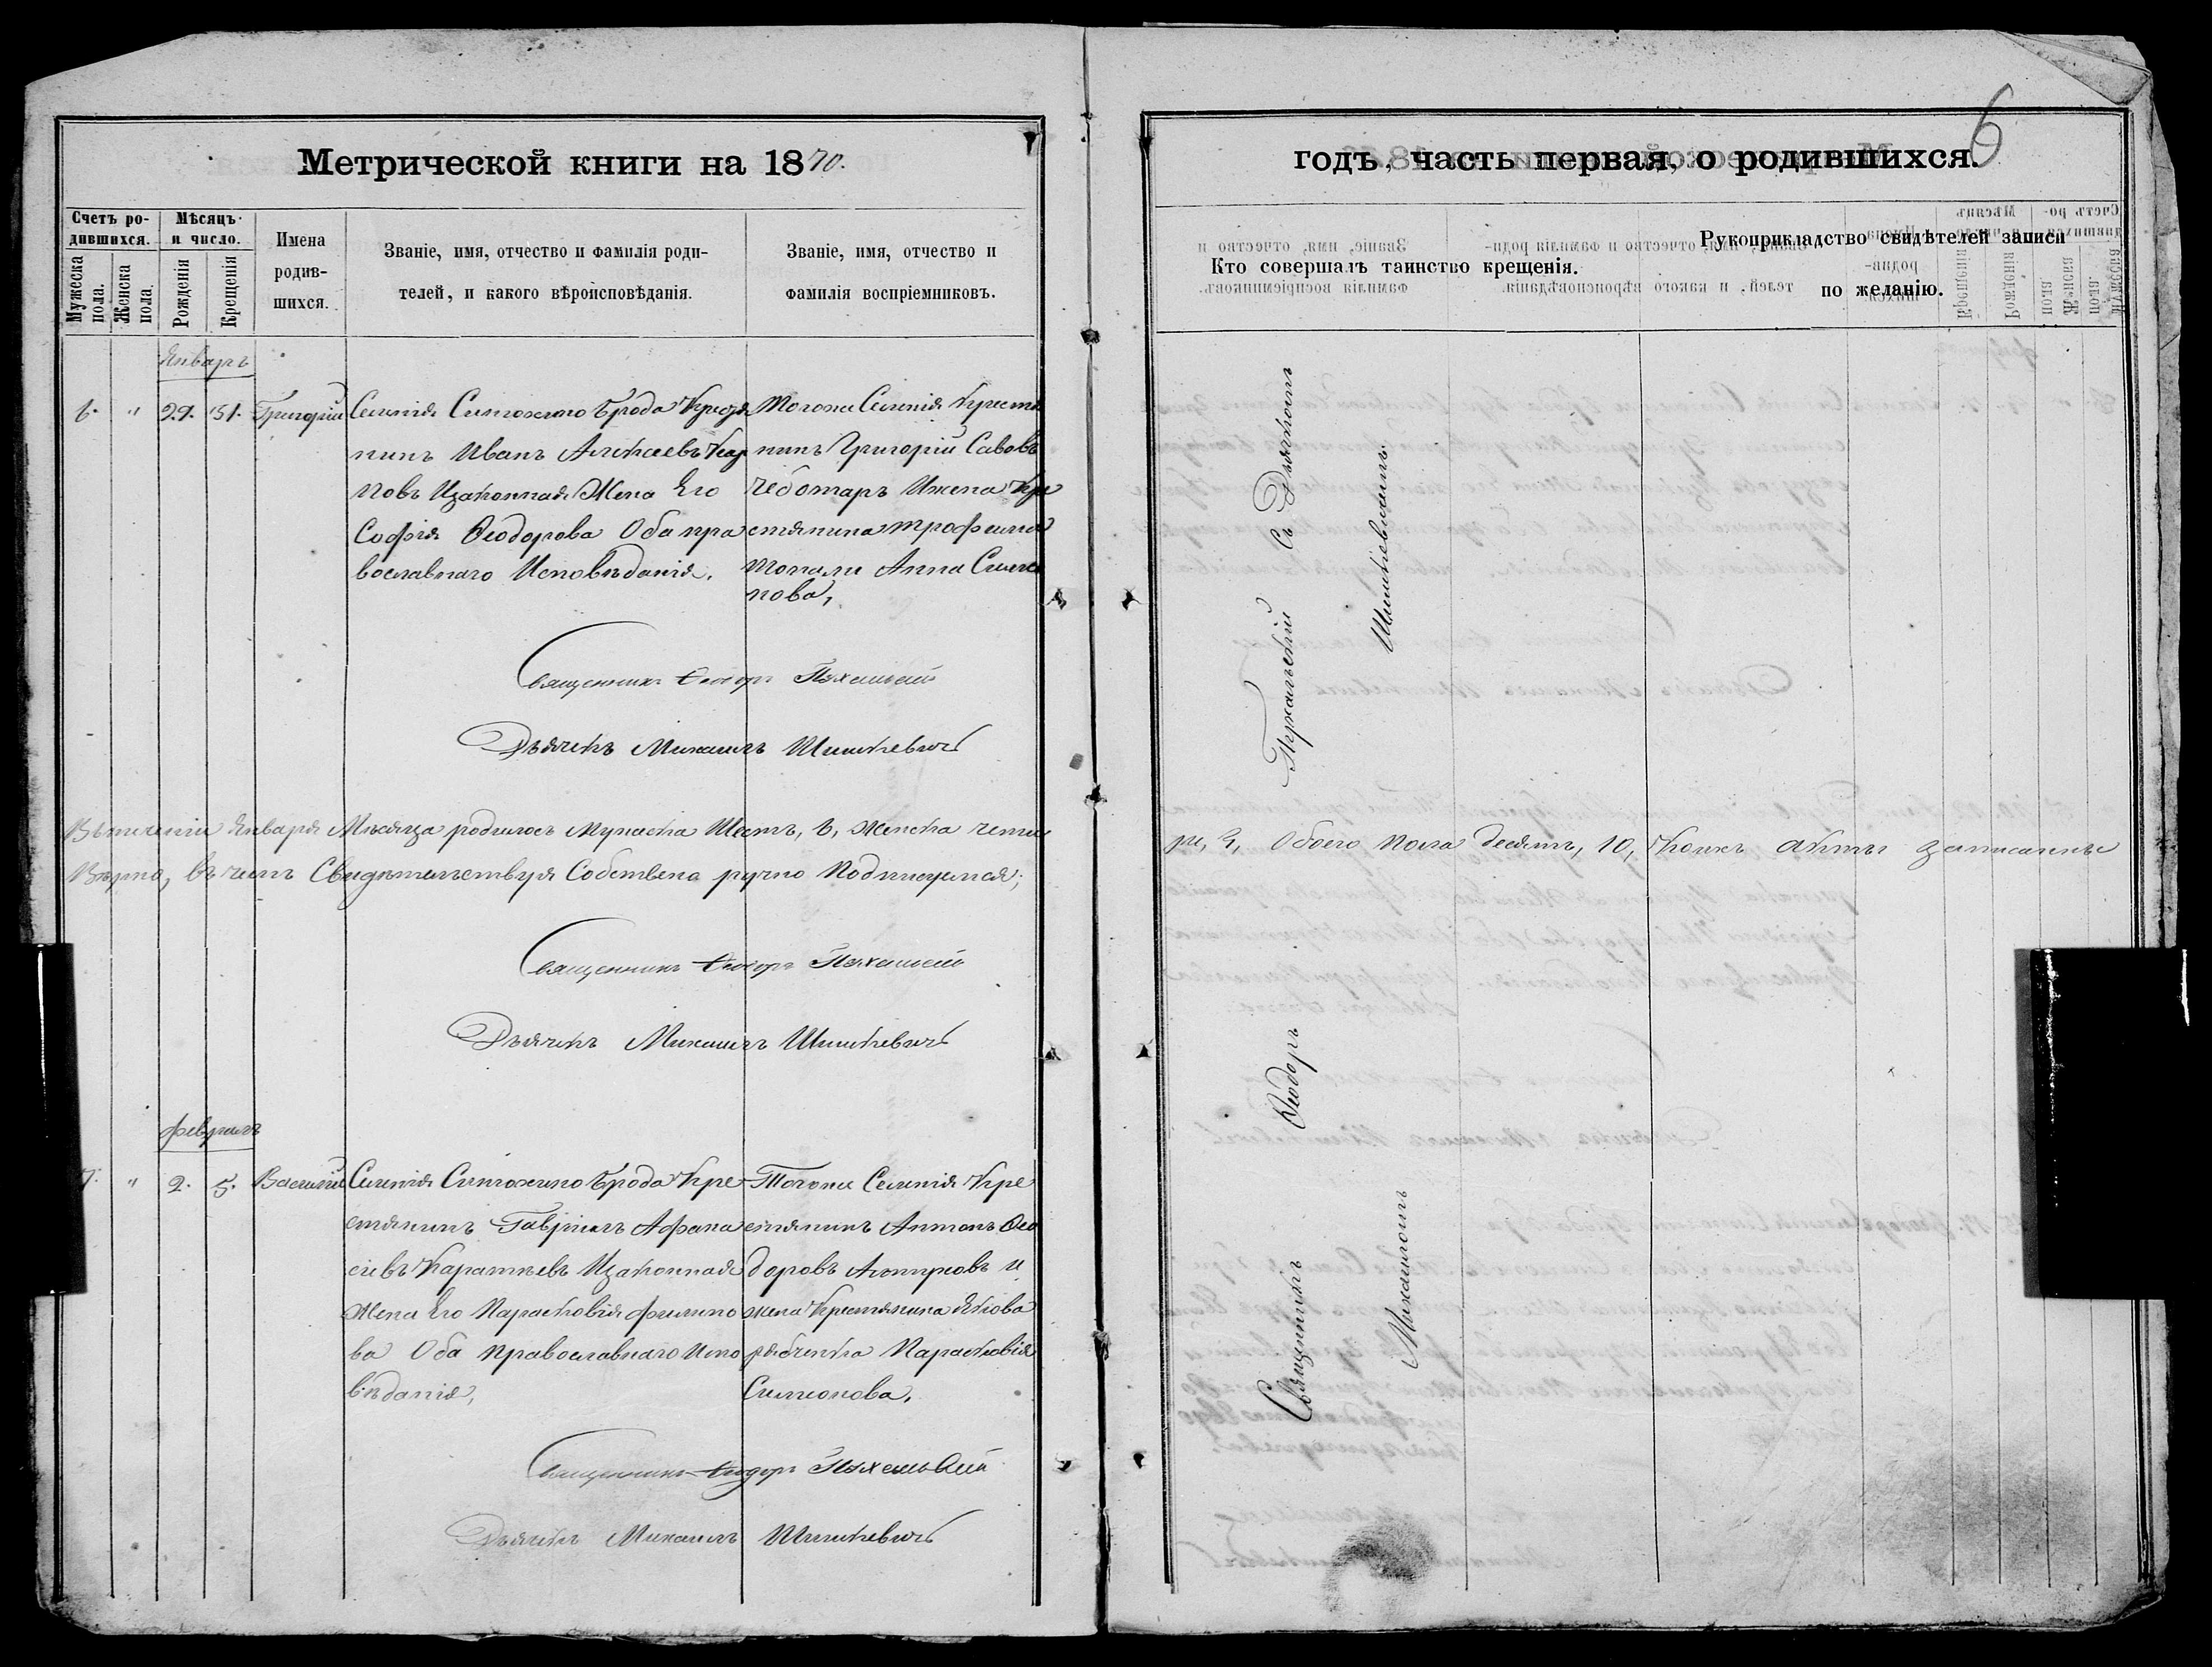 6
Метрической книги на 1870.
годъ, часть первая, о родившихся.
Счетъ ро-
дившихся.
Мѣсяцъ
и число.
Мужеска
пола.
Женска
пола.
Рожденія
Крещенія
Имена
родив-
шихся.
Званіе, имя, отчество и фамилія роди-
телей, и какого вѣроисповѣданія.
Званіе, имя, отчество и
фамилія воспріемниковъ.
Кто совершалъ таинство крещенія.
Рукоприкладство свидѣтелей записи
по желанію.
Январь
6. " 29. 31. Григорій
Селенія Симохино Брода Крестя
нинъ Иванъ
новъ Изаконная Жена Его
Софія Ѳеодорова Оба пра
вославнаго Исповѣданія.
Тогоже Селенія Крестя
нинъ Григорій Савовъ
Чеботаръ Ижена Кре
стянина Трофима
Топали Анна Симео
нова,
Священникъ Ѳеодоръ
Дьячекъ Михаилъ Шишкевичъ
Втеченіи Января Мѣсяца родилось Мужеска Шесть, 6, Женска четы
ре, 4, Обоего Пола десять, 10, Коихъ Акты записанны
Вѣрно, въ чемъ Свидѣтельствуя Собствена ручно Подписуемся;
Священникъ Ѳеодоръ
Дьячекъ Михаилъ Шишкевичъ
Февраль
7. " 2. 5. Василий
Селенія Симохино Брода Кре
стянинъ Гавріилъ Афана
сіевъ Изаконная
Жена Его Парасковія Филипо
ва Оба Православнаго Испо
вѣданія,
Тогоже Селенія Кре
стянинъ Антонъ Ѳео
доровъ и
жена Крестянина Якова
Рябченка Парасковія
Симеонова,
Священникъ Ѳеодоръ
Дьячекъ Михаилъ Шишкевичъ
Священникъ Ѳеодоръ Пухальскій съ Дьячкомъ
Михаиломъ Шишкевичемъ.